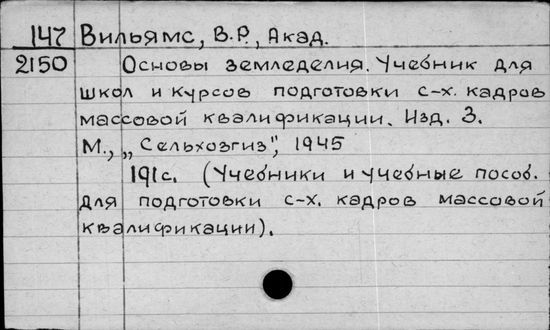 147 Вильямс, В.Р., Акад.
2150 Основы земледелия. Учебник для
школ и курсов подготовки с-х. кадров
массовой квалификации. Изд. 3.
М., „Сельхозгиз", 1945
191с. (Учебники и учебные пособ.
для подготовки с-х. кадров массовой
квалификации).